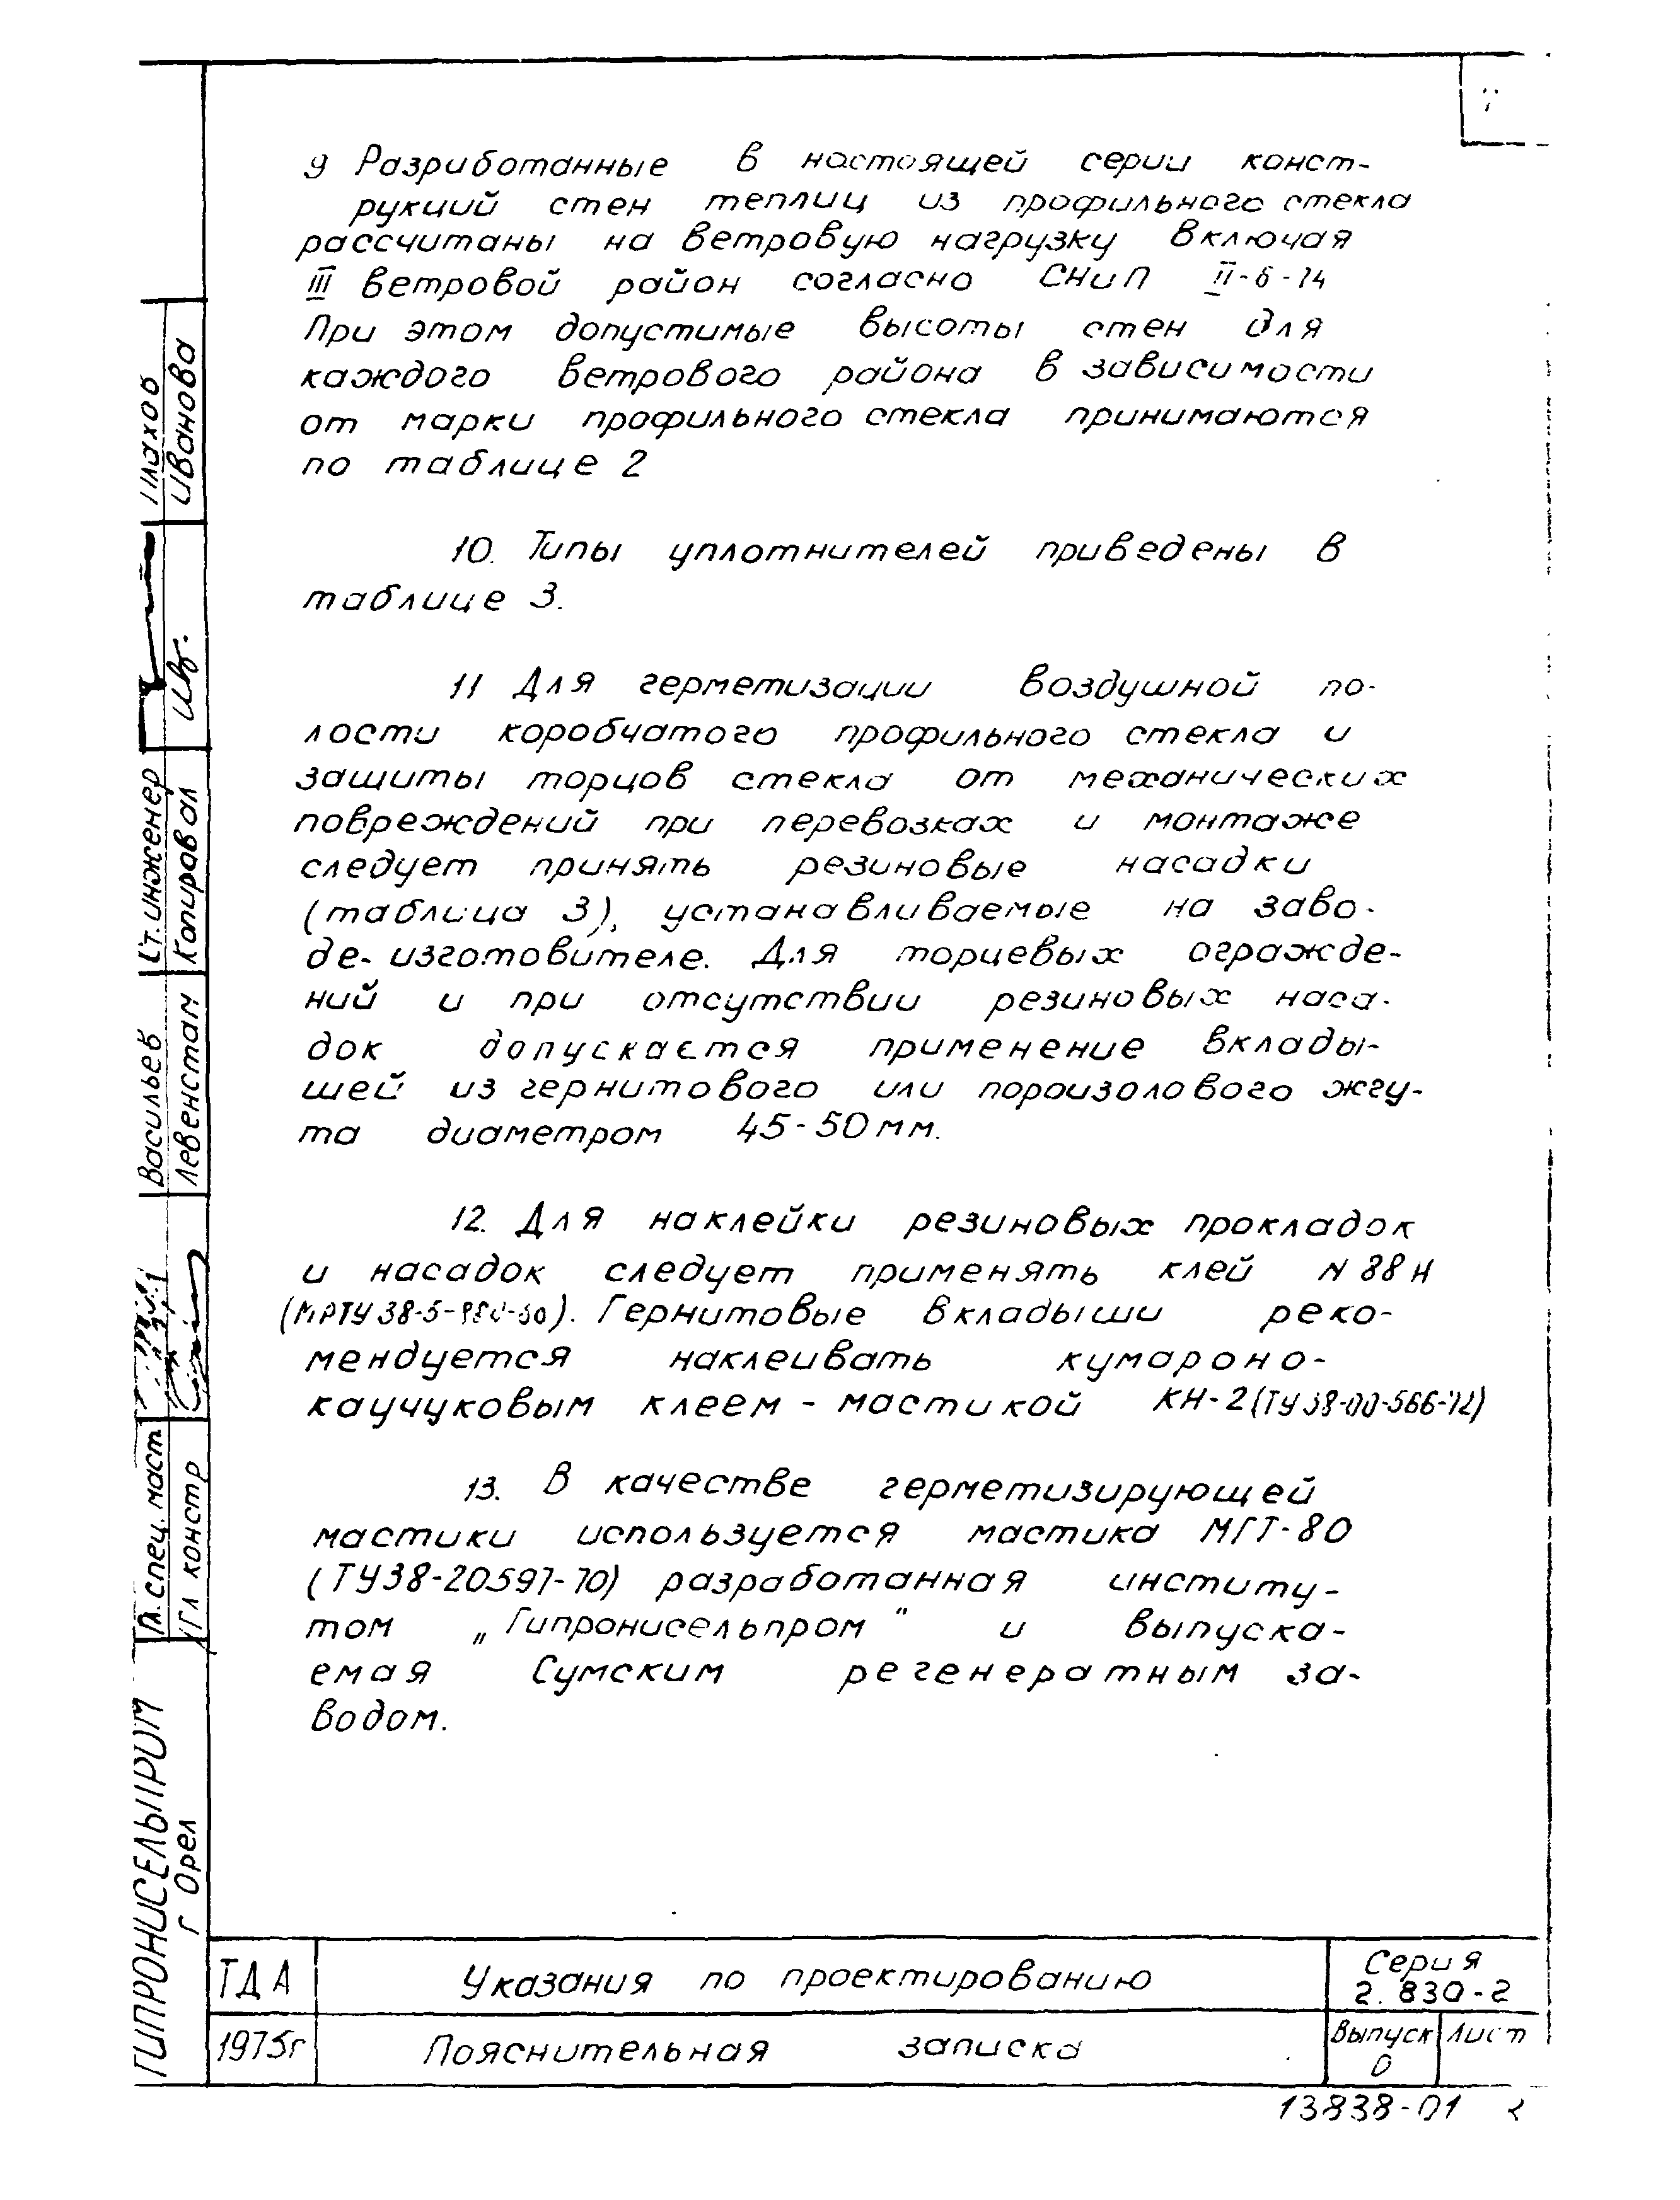 9 Разработанные в настоящей серии конст-
рукций стен теплиц из профильного стекла
рассчитаны на ветровую нагрузку включая
III ветровой район согласно СНиП II-6-74
При этом допустимые высоты стен для
каждого ветрового района в зависимости
от марки профильного стекла принимаются
по таблице 2
10. Типы уплотнителей приведены в
таблице 3.
11 Для герметизации воздушной по-
лости коробчатого профильного стекла и
защиты торцов стекла от механических
повреждений при перевозках и монтаже
следует принять резиновые насадки
(таблица 3), устанавливаемые на заво-
де-изготовителе. Для торцевых огражде-
ний и при отсутствии резиновых наса-
док допускается применение вклады-
шей из гернитового или пороизолового жгу-
та диаметром 45-50мм.
12. Для наклейки резиновых прокладок
и насадок следует применять клей N 88 Н
Гернитовые вкладыши реко-
мендуется наклеивать кумароно-
каучуковым клеем - мастикой КН-2 (ТУ 38-00-566-72)
13. В качестве герметизирующей
мастики используется мастика МГТ-80
(ТУ38-20597-70) разработанная институ-
том „Гипронисельпром" и выпуска-
емая Сумским регенератным за-
водом.
ГИПРОНИСЕЛЬПРОМ
г Орел
Гл. спец. маст
Гл констр
Васильев
Левенстам
Ст. инженер
Копировал
Ив.
Плахов
Иванова
ТДА
1975г
Указания по проектированию
Пояснительная записка
Серия
2.830-2
Выпуск
0
Лист
13838-01